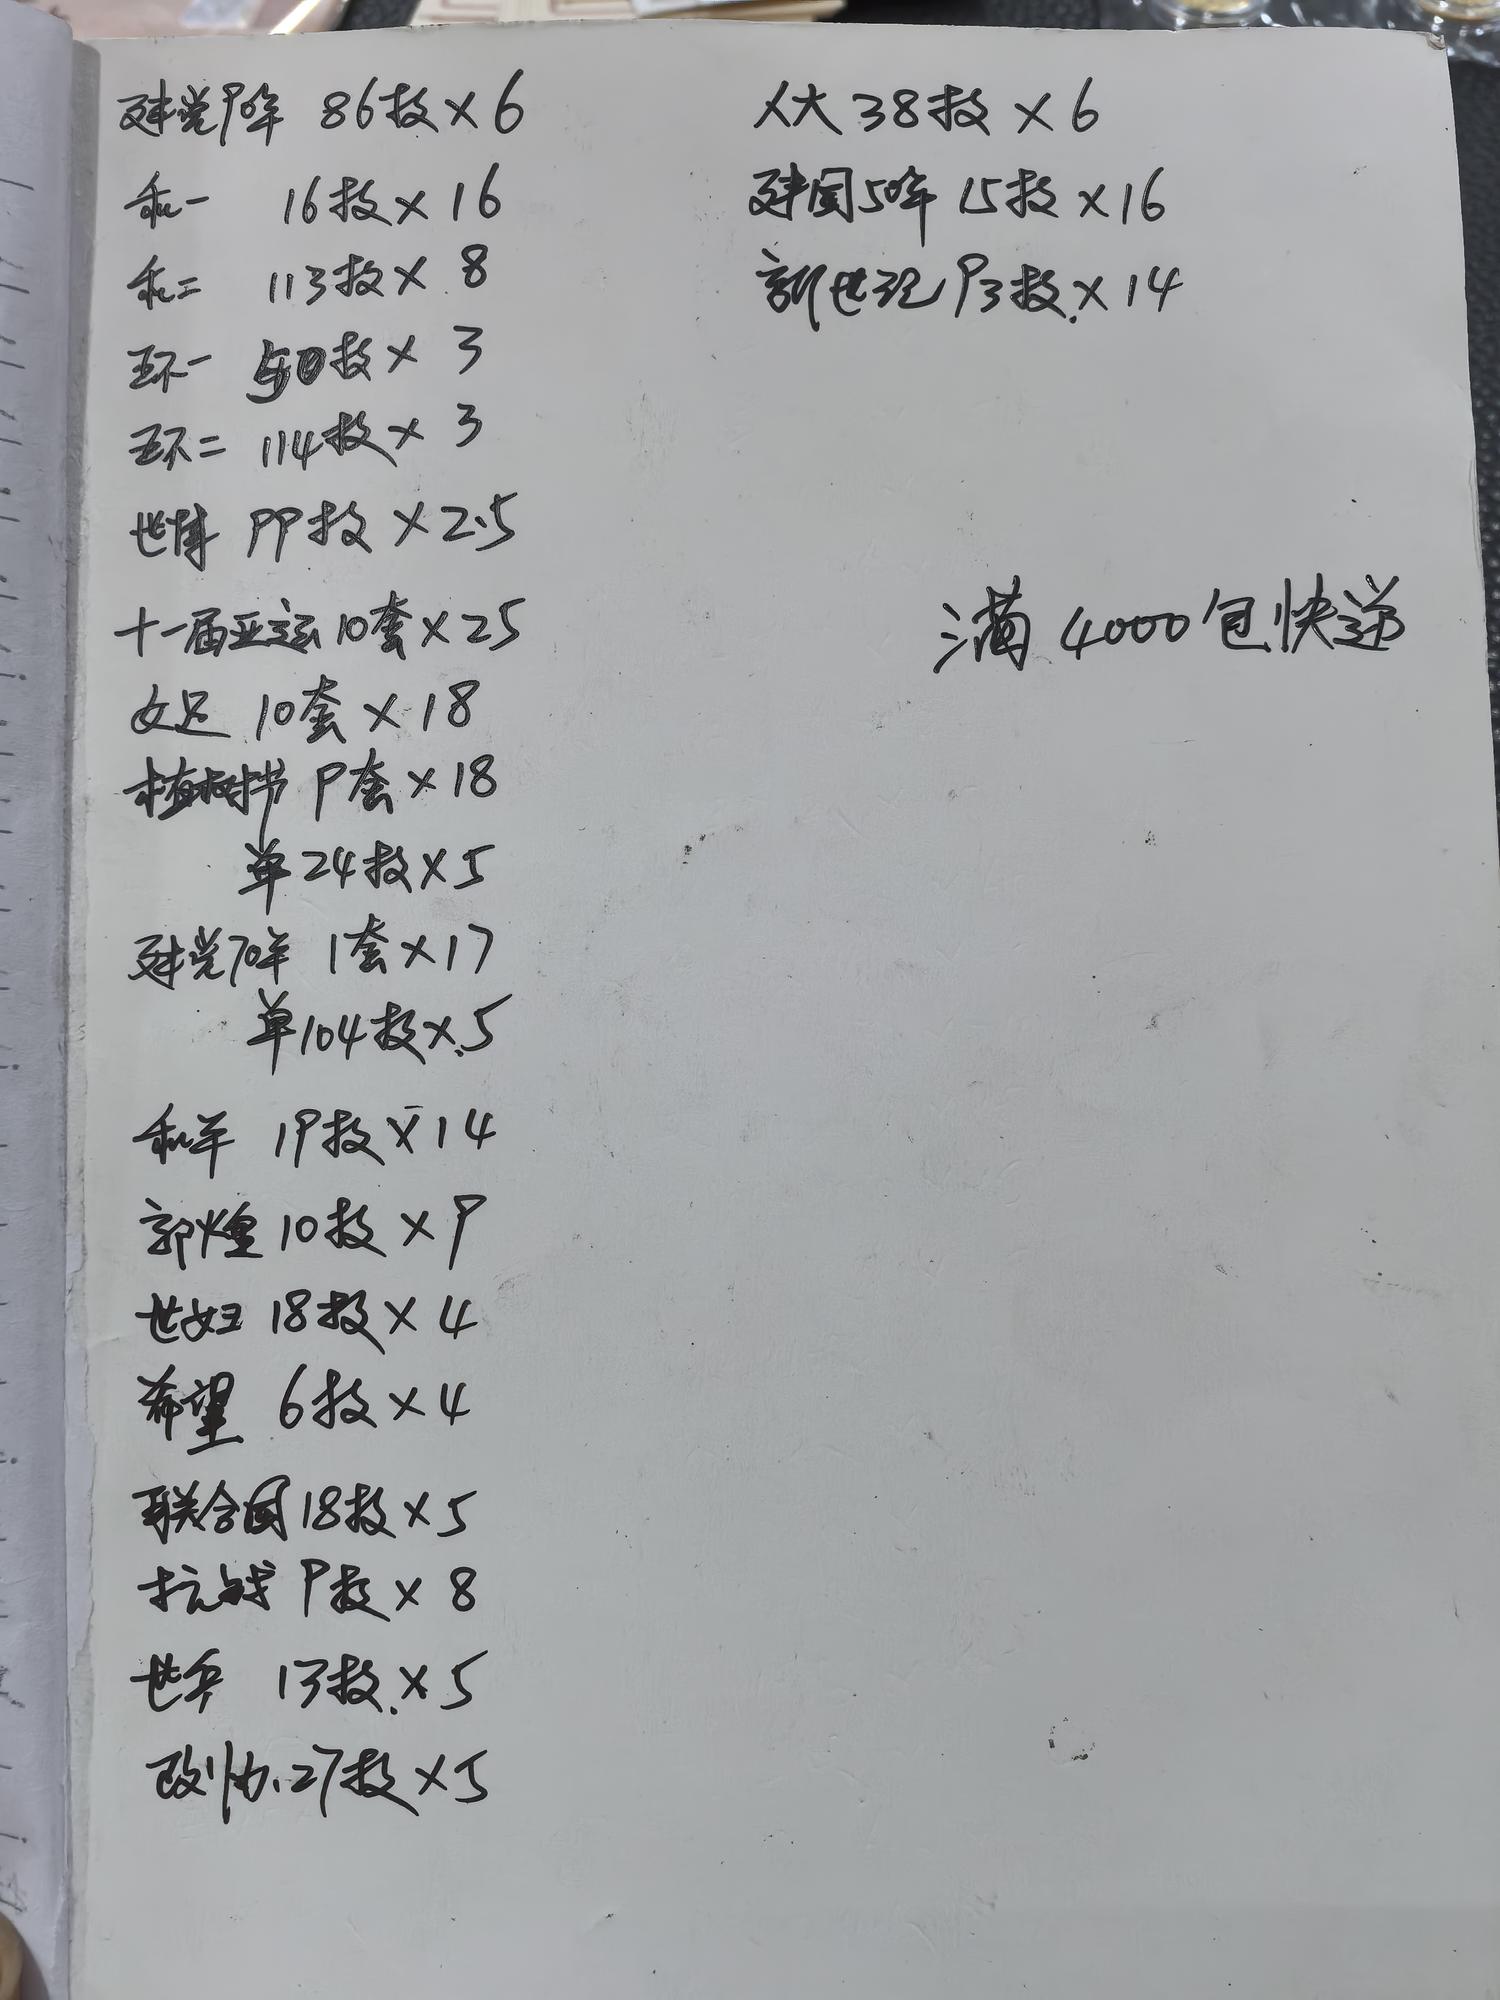 建党90年 86枚×6
和一 16枚×16
和二 113枚×8
五环一 50枚×3
五环二 114枚×3
世博 99枚×2.5
十一届亚运 10套×25
女足 10套×18
植树节 9套×18
单24枚×5
建党70年 1套×17
单104枚×5
和羊 19枚×14
郭煌 10枚×9
世妇 18枚×4
希望 6枚×4
联合国 18枚×5
抗战 9枚×8
世乒 13枚×5
改协.27枚×5
人大 38枚×6
建国50年 15枚×16
新世纪 93枚×14
满4000包快递